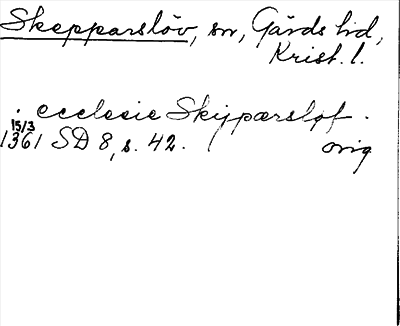 Skepparslöv, sn, Gärds hd,
Krist. l.
. ecclesie Skijpærsløf .
15/3
1361 SD 8, s. 42. orig